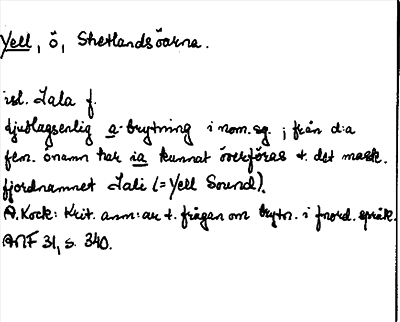 Yell, ö, Shetlandsöarna.
isl. Jala f.
ljudlagsenlig a-brytning i nom. sg.; från d:a
fem. önamn har ia kunnat överföras t. det mask.
fjordnamnet Jali (= Yell Sound).
A. Kock: Krit. anm:ar t. frågan om brytn. i fnord. språk.
ANF 31, s. 340.